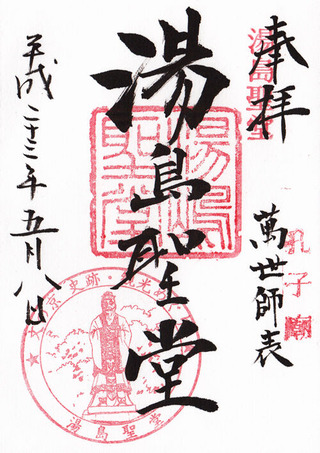 奉拝
湯島聖堂
萬世師表
孔子廟
湯島聖堂
湯島聖堂
平成二十三年五月八日
湯島聖堂